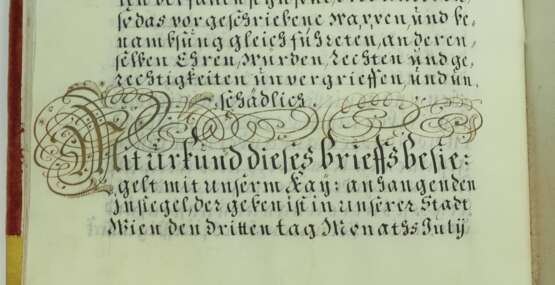 se das vorgeschriebene Wappen, und be,
nambsung gleich führeten, an deren,
selben Ehren, Würden, Rechten und ge,
rechtigkeiten unvergrieffen, und un,
schädlich.
Mit urkund dieses brieffs besie:
gelt mit unserm Kay: anhangenden
Insiegel, der geben ist in unserer Stadt
Wien den dritten tag Monaths July